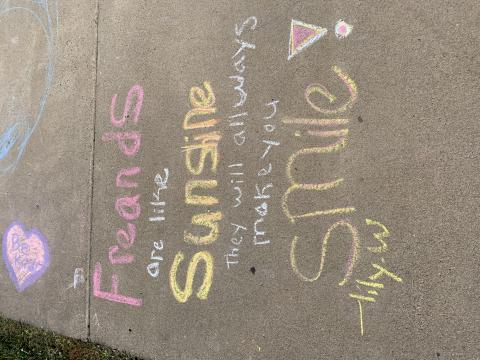 Freands
are like
Sunshine
They will allways
make you
Smile!
-lily.W